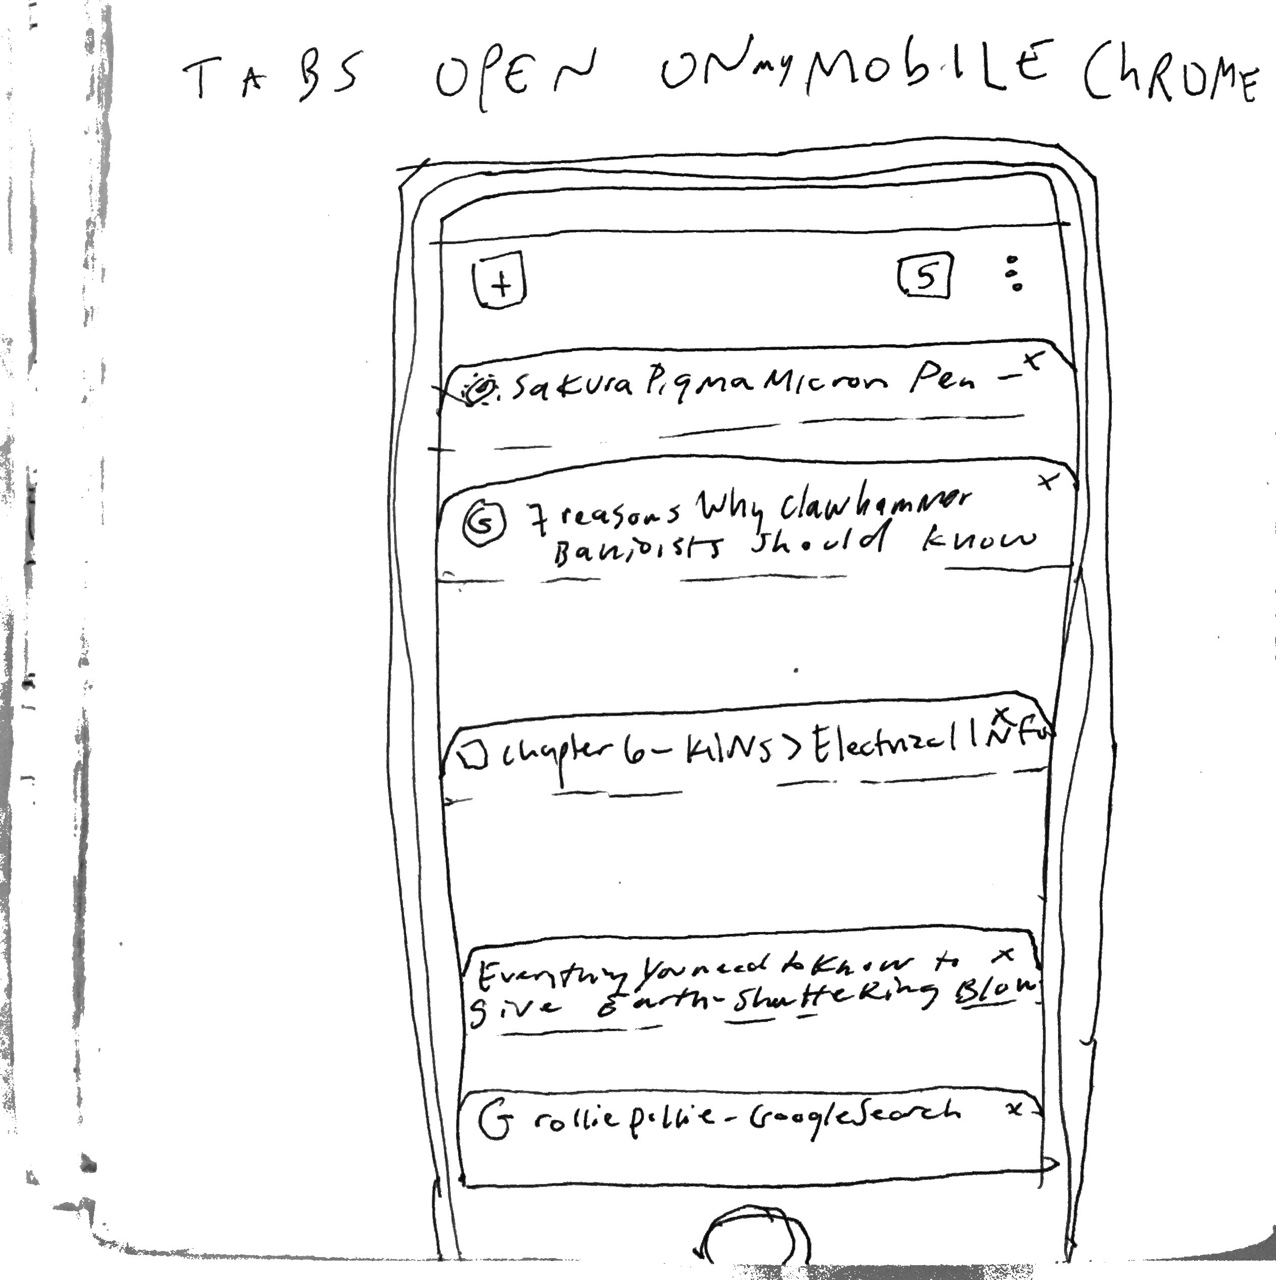 TABS OPEN ON my MObiLE ChROME
+ 5
Sakura Pigma Micron Pen - x
G 7 reasons Why clawhammer x
Banjoists should know
chapter 6 - KilNs > Electrical INFo x
Everything You need to know to x
give Earth-Shattering Blow
G rollie pollie - Google Search x